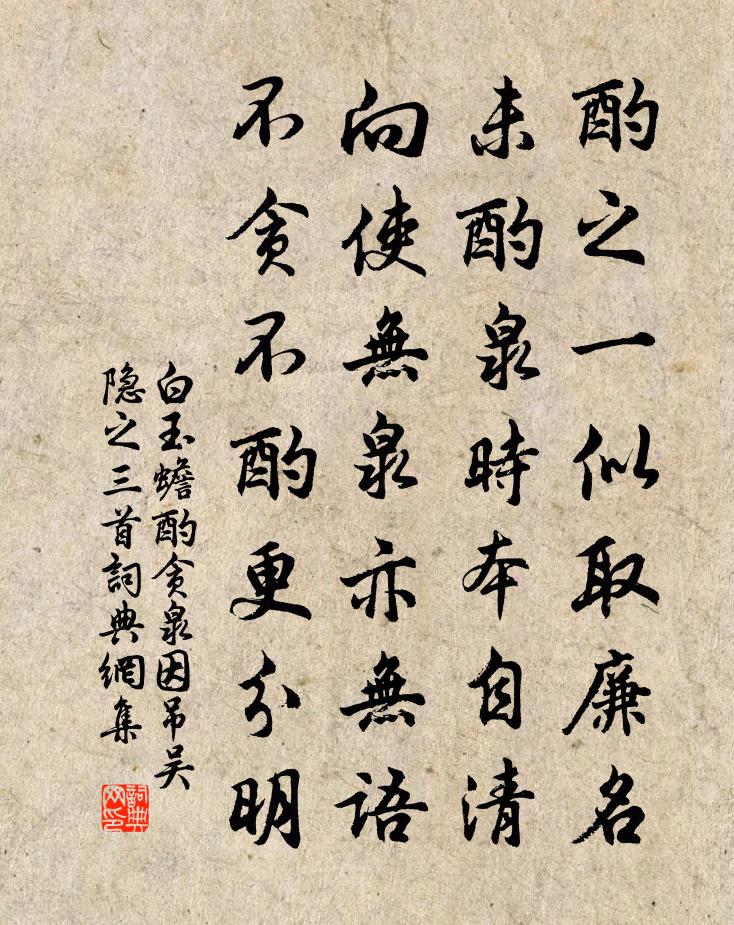 酌之一似取廉名
未酌泉時本自清
向使無泉亦無語
不貪不酌更分明
白玉蟾酌貪泉因吊吴
隐之三首詞典網集
詞典网印